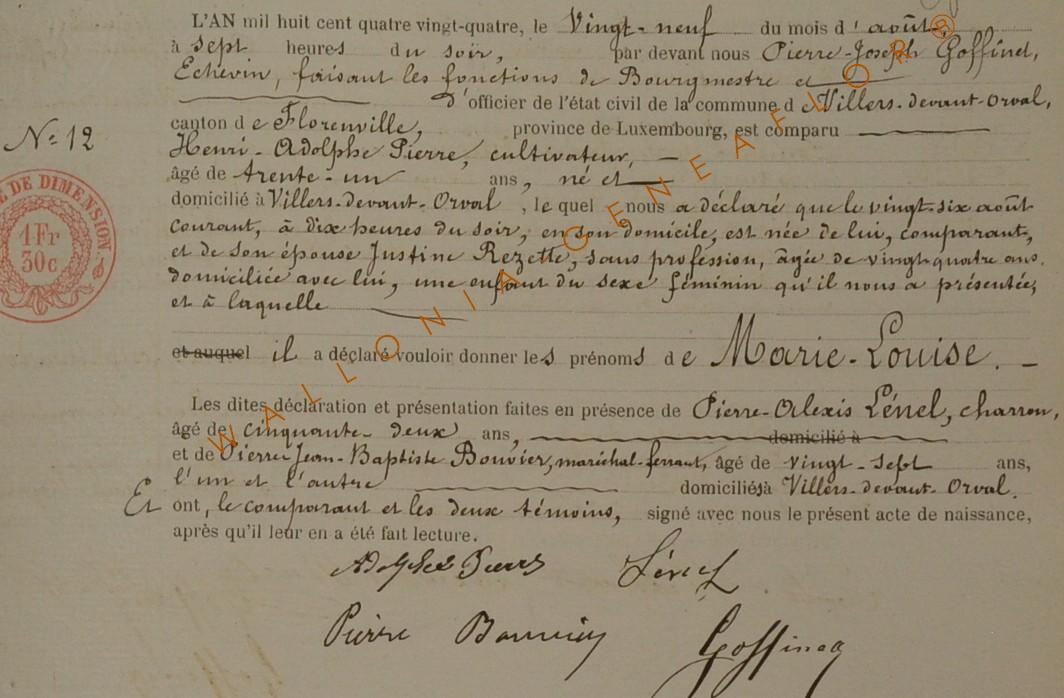 L'AN mil huit cent quatre vingt-quatre, le Vingt-neuf du mois d'août,
à sept heures du soir, par devant nous Pierre-Joseph Goffinet,
Echevin, faisant les fonctions de Bourgmestre et
d'officier de l'état civil de la commune d e Villers-devant-Orval,
N° 12
canton d e Florenville, province de Luxembourg, est comparu
Henri-Adolphe Pierre, cultivateur,
âgé de trente-un ans, né et
domicilié à Villers-devant-Orval, le quel nous a déclaré que le vingt-six août
courant, à dix heures du soir, en son domicile, est née de lui, comparant,
et de son épouse Justine Rezette, sans profession, âgée de vingt-quatre ans,
domiciliée avec lui, une enfant du sexe féminin qu'il nous a présentée,
et à laquelle
et auquel il a déclaré vouloir donner les prénoms d e Marie-Louise.
Les dites déclaration et présentation faites en présence de Pierre-Alexis Lénel, charron,
âgé de cinquante-deux ans, domicilié à
et de Pierre Jean-Baptiste Bouvier, maréchal-ferrant, âgé de vingt-sept ans,
l'un et l'autre domiciliés à Villers-devant-Orval.
Et ont, le comparant et les deux témoins, signé avec nous le présent acte de naissance,
après qu'il leur en a été fait lecture.
Adolphe Pierre Lénel
Pierre Bouvier Goffinet
DE DIMENSION
1 Fr
30c
WALLONIA GENEAFLOR®